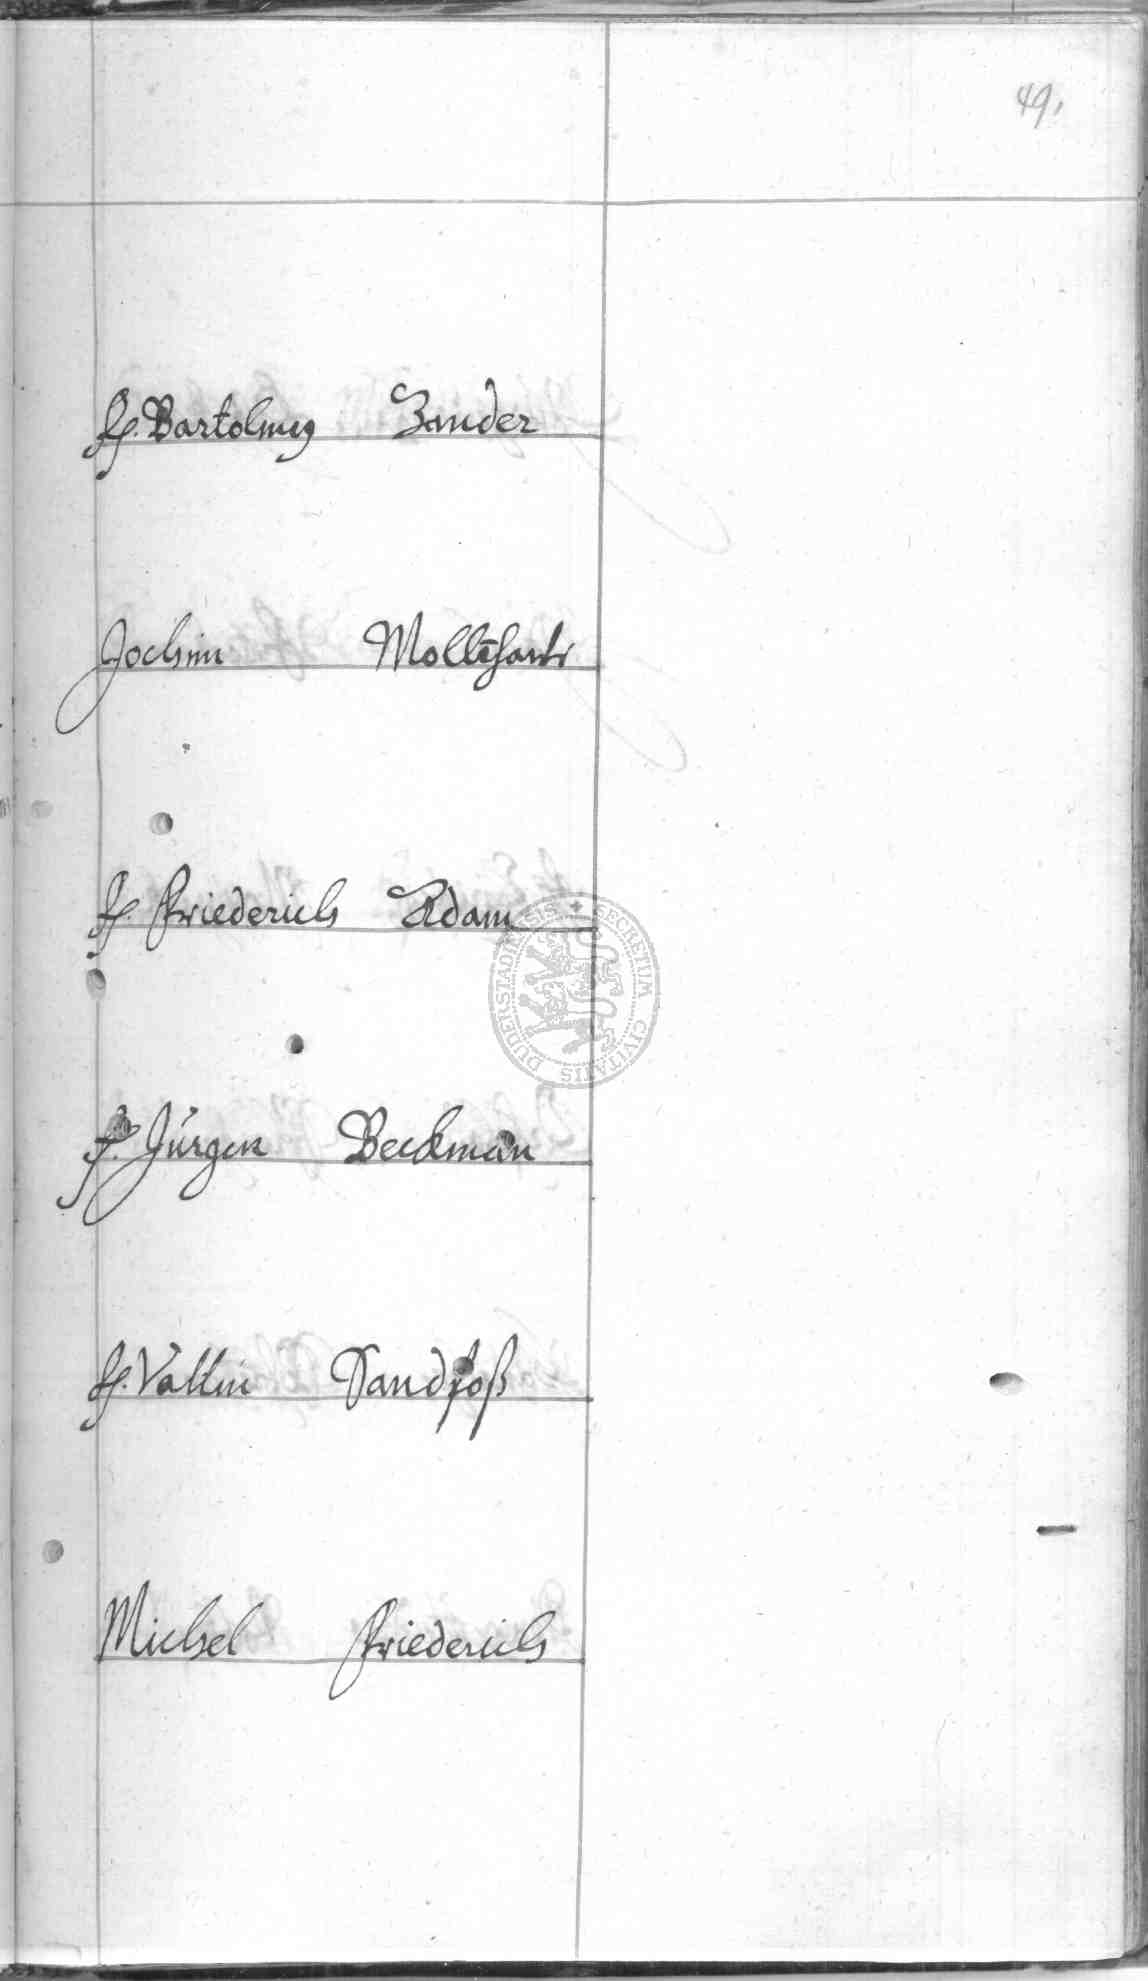 49.
H. Bartolmeg Zander
Jochim Molthan
H. Friederich Adam
H. Jürgen Beckman
H. Valtin Sandfoß
Michel Friederich
SECRETUM CIVITATIS DUDERSTADIENSIS